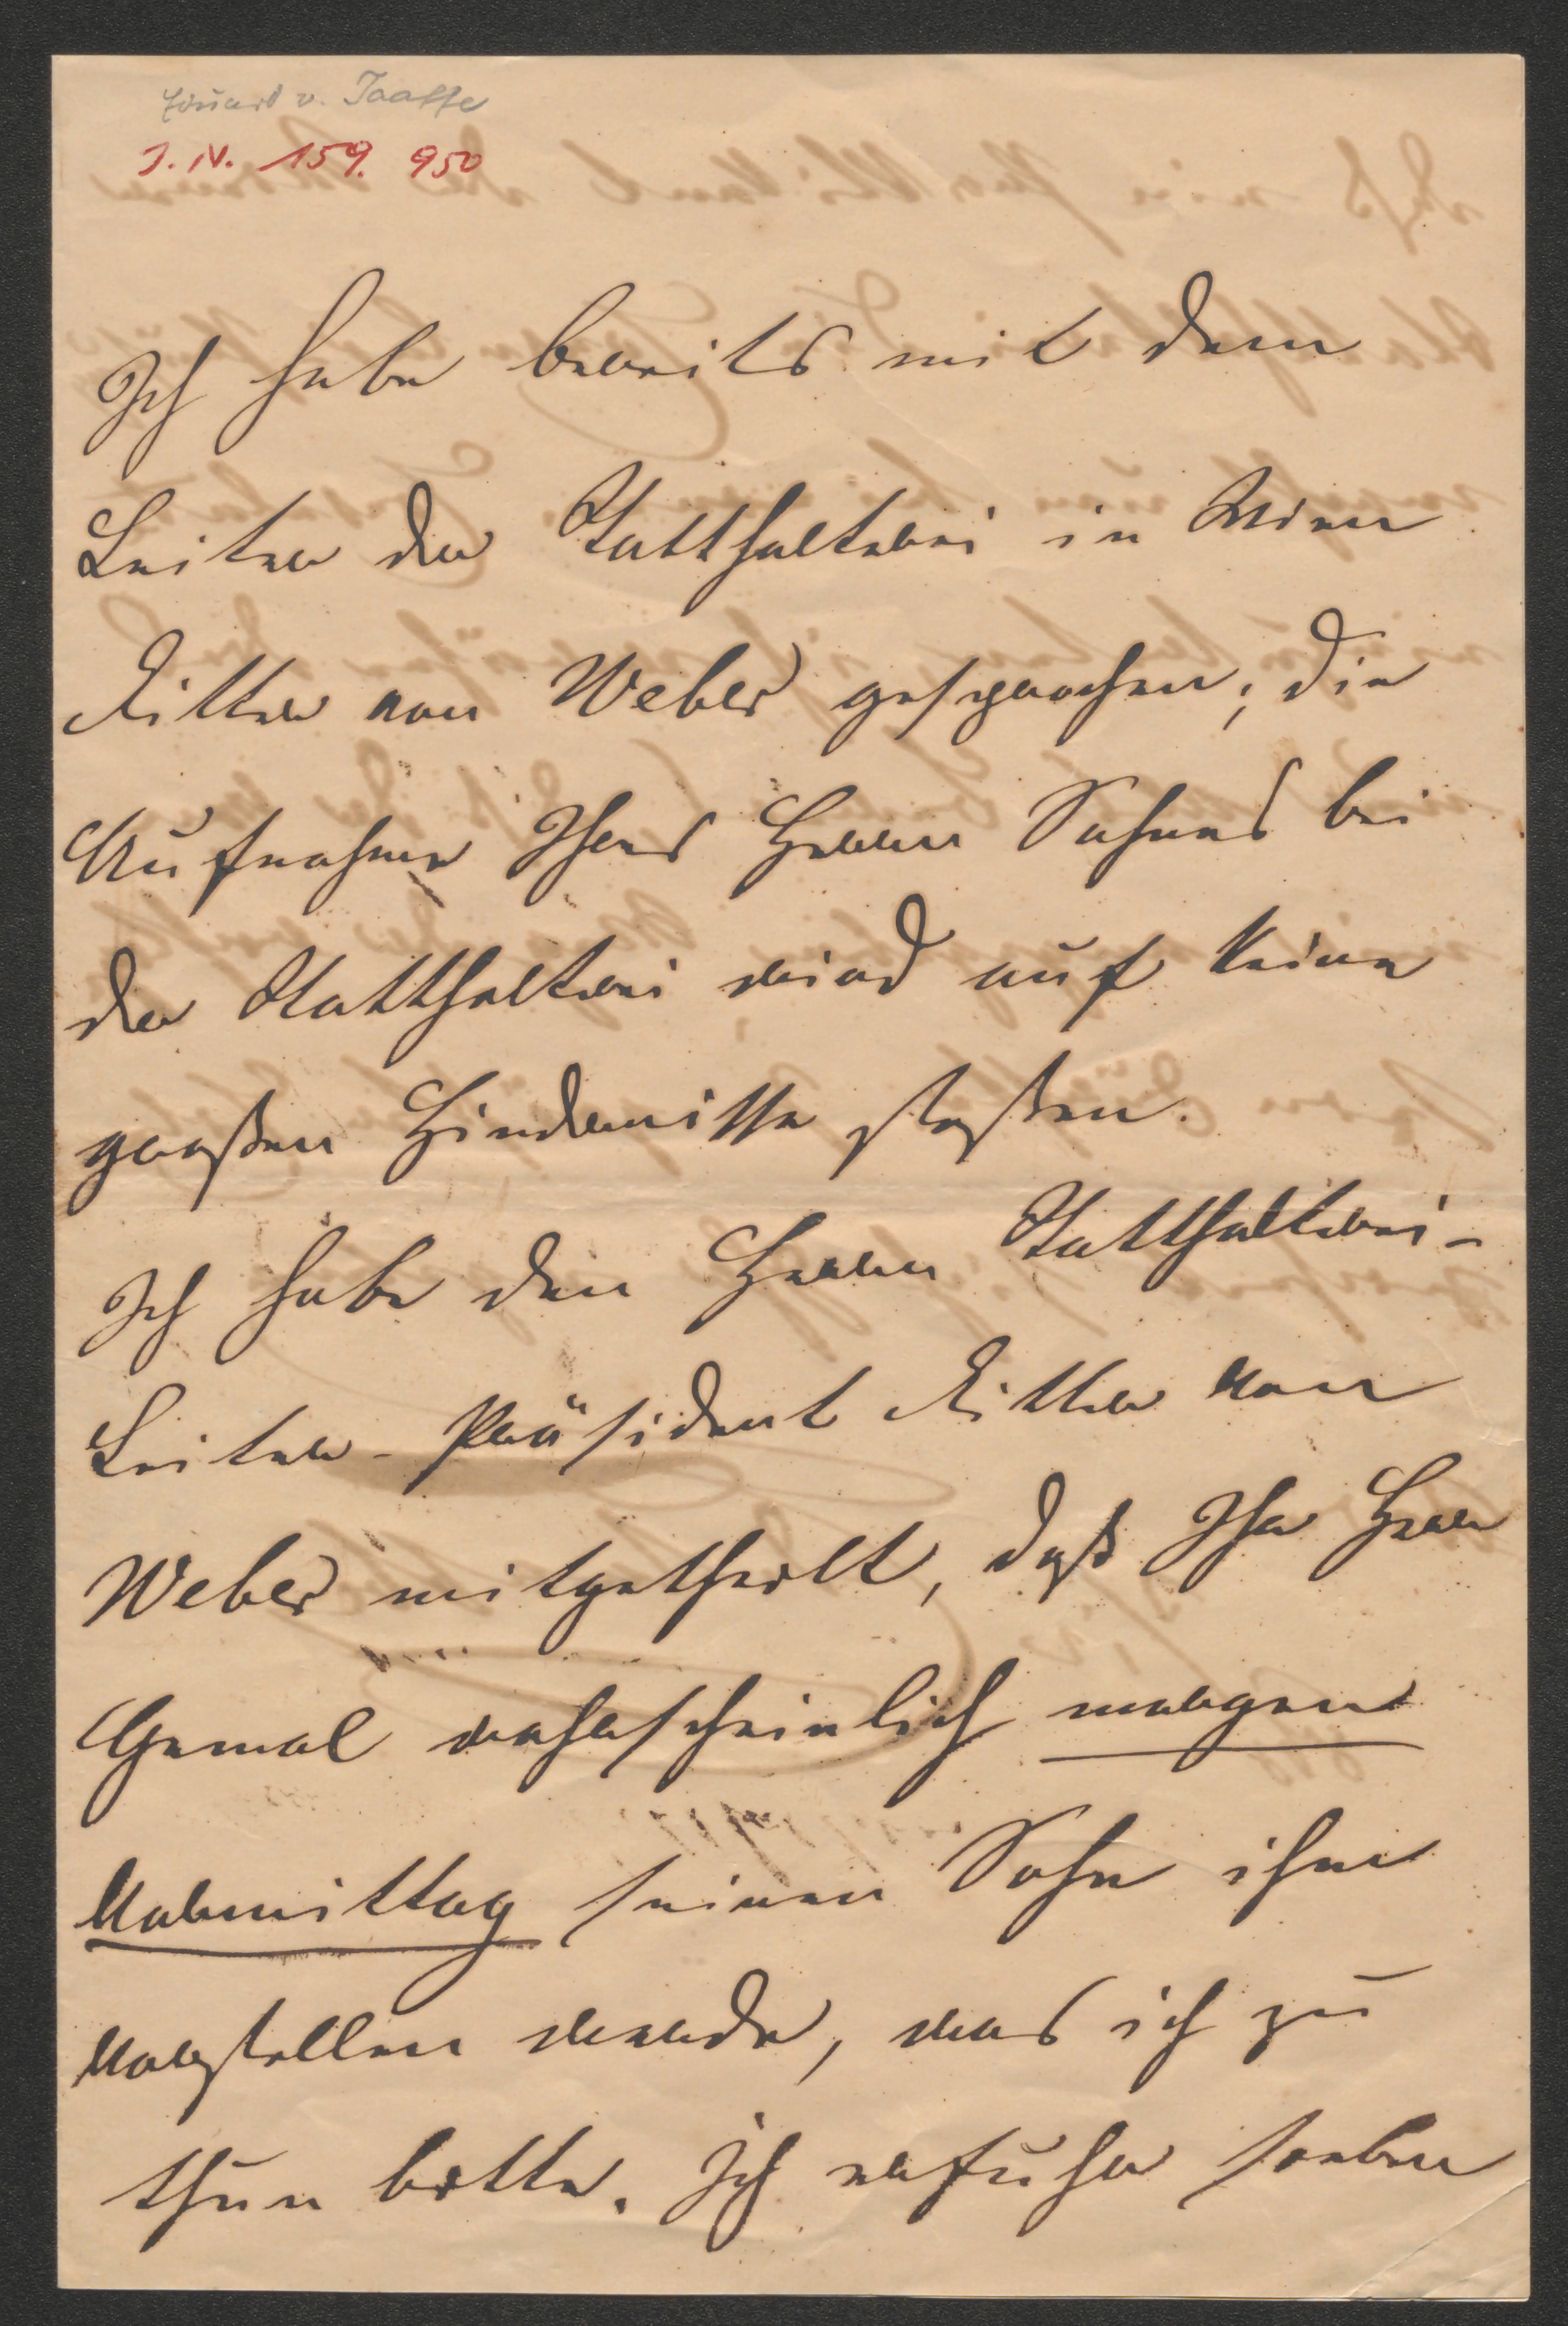 Eduard v. Taaffe
J. N. 159. 950
Ich habe bereits mit dem
Leiter der Statthalterei in Wien
Ritter von Weber gesprochen; die
Aufnahme Ihres Herrn Sohnes bei
der Statthalterei wird auf keine
großen Hindernisse stoßen.
Ich habe den Herrn Statthalterei-
Leiter-Präsident Ritter von
Weber mitgetheilt, daß Ihr Herr
Gemal wahrscheinlich morgen
Vormittag seinen Sohn ihm
vorstellen werde, was ich zu
thun bitte. Ich erfuhr soeben